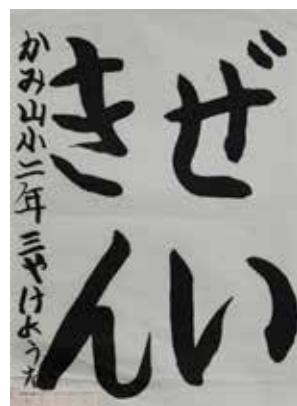 ぜい
きん
かみ山小二年 三やけようた